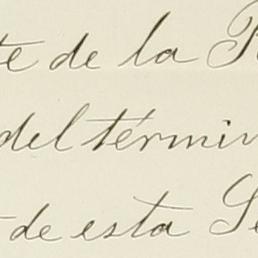 te de la
del términ
de esta Se